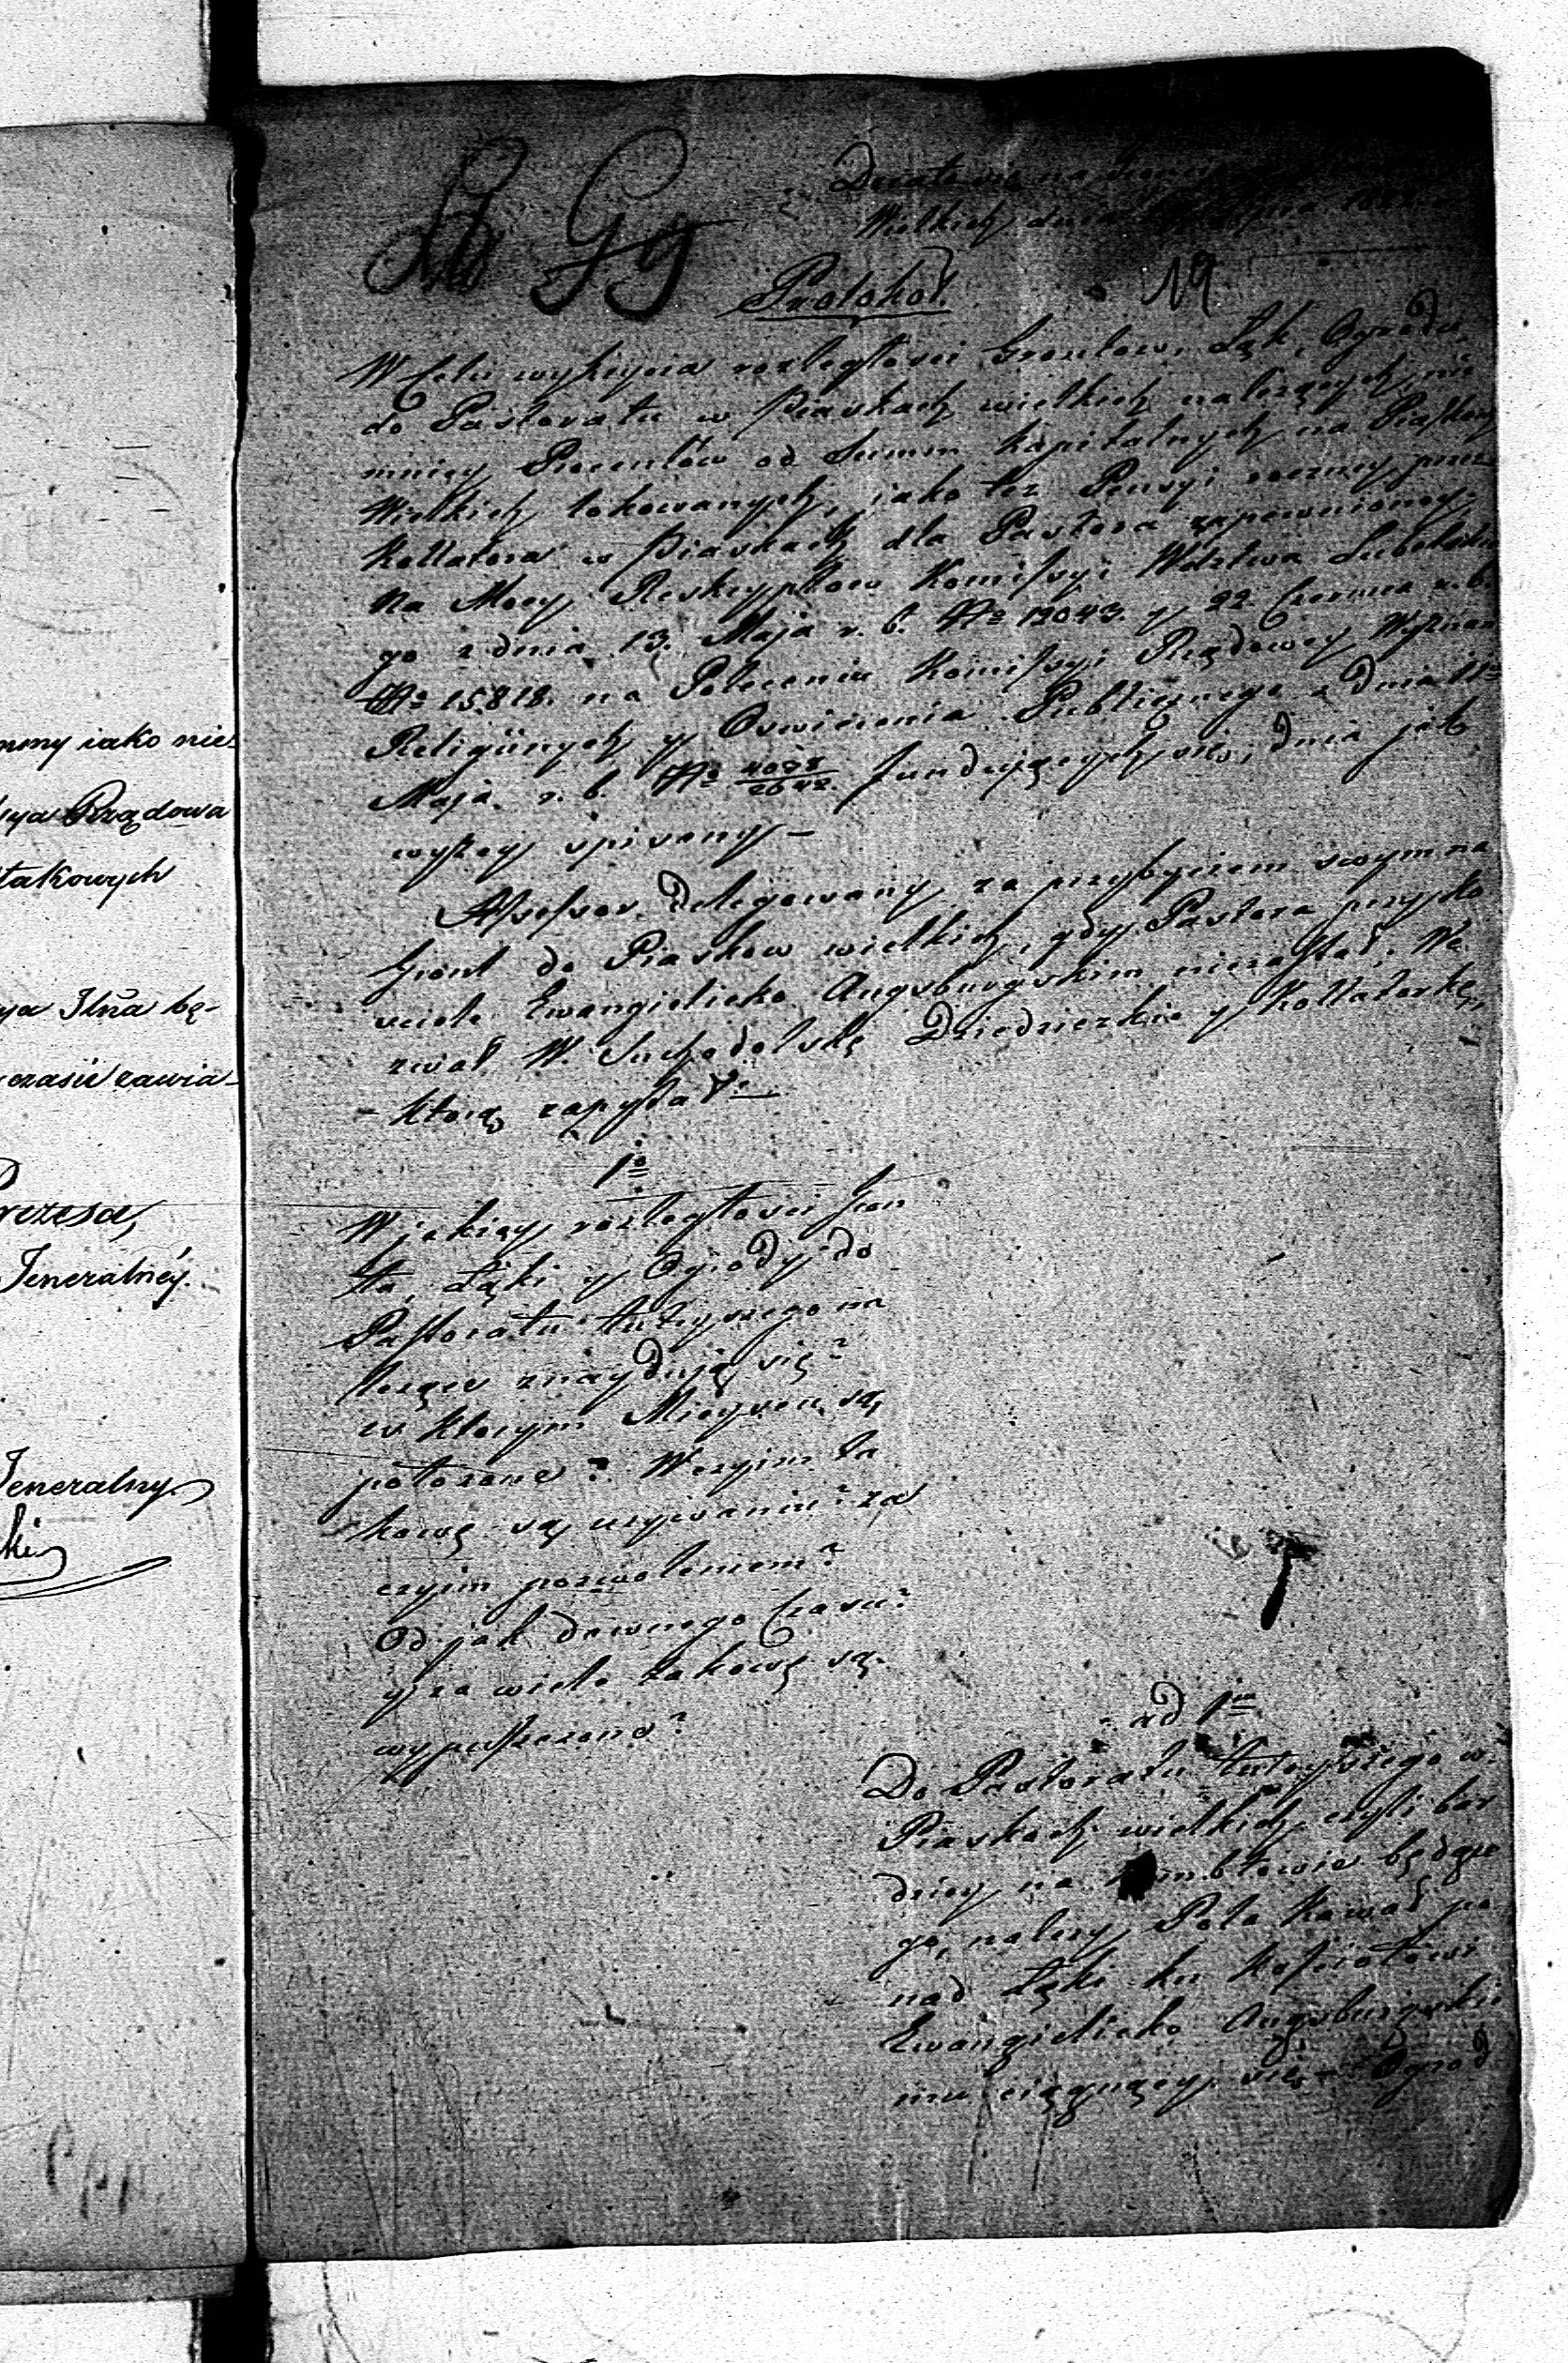 nmy iako nie-
sya Rządowa
takowych
ya Ilña bę-
czasie zawia-
Prezesa,
Jeneralnéy.
Jeneralny
ki
Działo się na
Wielkich dnia
19
Protokoł.
W Celu wykrycia rozległosci Grontow, Łąk, Ogrodu,
do Pastoratu w Piaskach wielkich należących, nie
mniey Procentów od Summ Kapitalnych na Piaskach
Wielkich lokowanych, iako też Pensyi roczney przez
Kollatora w Piaskach dla Pastora zapewnioney.
Na Mocy Reskryptow Komissyi Wdztwa Lubelskie
go z dnia 13. Maja r. b. No 12043. y 22 Czerwca r. b.
No 15.818. na Poleceniu Komissyi Rządowey Wyznań
Religiinych y Oswiecenia Publicznego z Dnia 11go
Maja r. b. No fundujących się, dnia jak
wyżey spisany —
Assessor Delegowany za przybyciem swym na
Gront do Piaskow wielkich, gdy Pastora przy Ko
sciele Ewangielicko Augsburgskim niezastał, We
zwał W. Suchodolską Dziedziczkę y Kollatorkę,
którą zapytał:—
1o
W jakiey rozległosci Gron
ta, Łąki y Ogrody do
Pastoratu tuteyszego na
leżące znayduią się?
w ktorym Mieyscu są
położone? W czyim ta
kowe są używaniu? za
czyim pozwoleniem?
Od jak dawnego Czasu?
y za wiele takowe są
wypuszczone?
ad 1m
Do Pastoratu tuteyszego w
Piaskach wielkich czyli bar
dziey na będące
go, należy Pola Kawał po
nad Łąki ku Kosciołowi
Ewangielicko Augsburgskie
mu ciągnący się — Ogrod